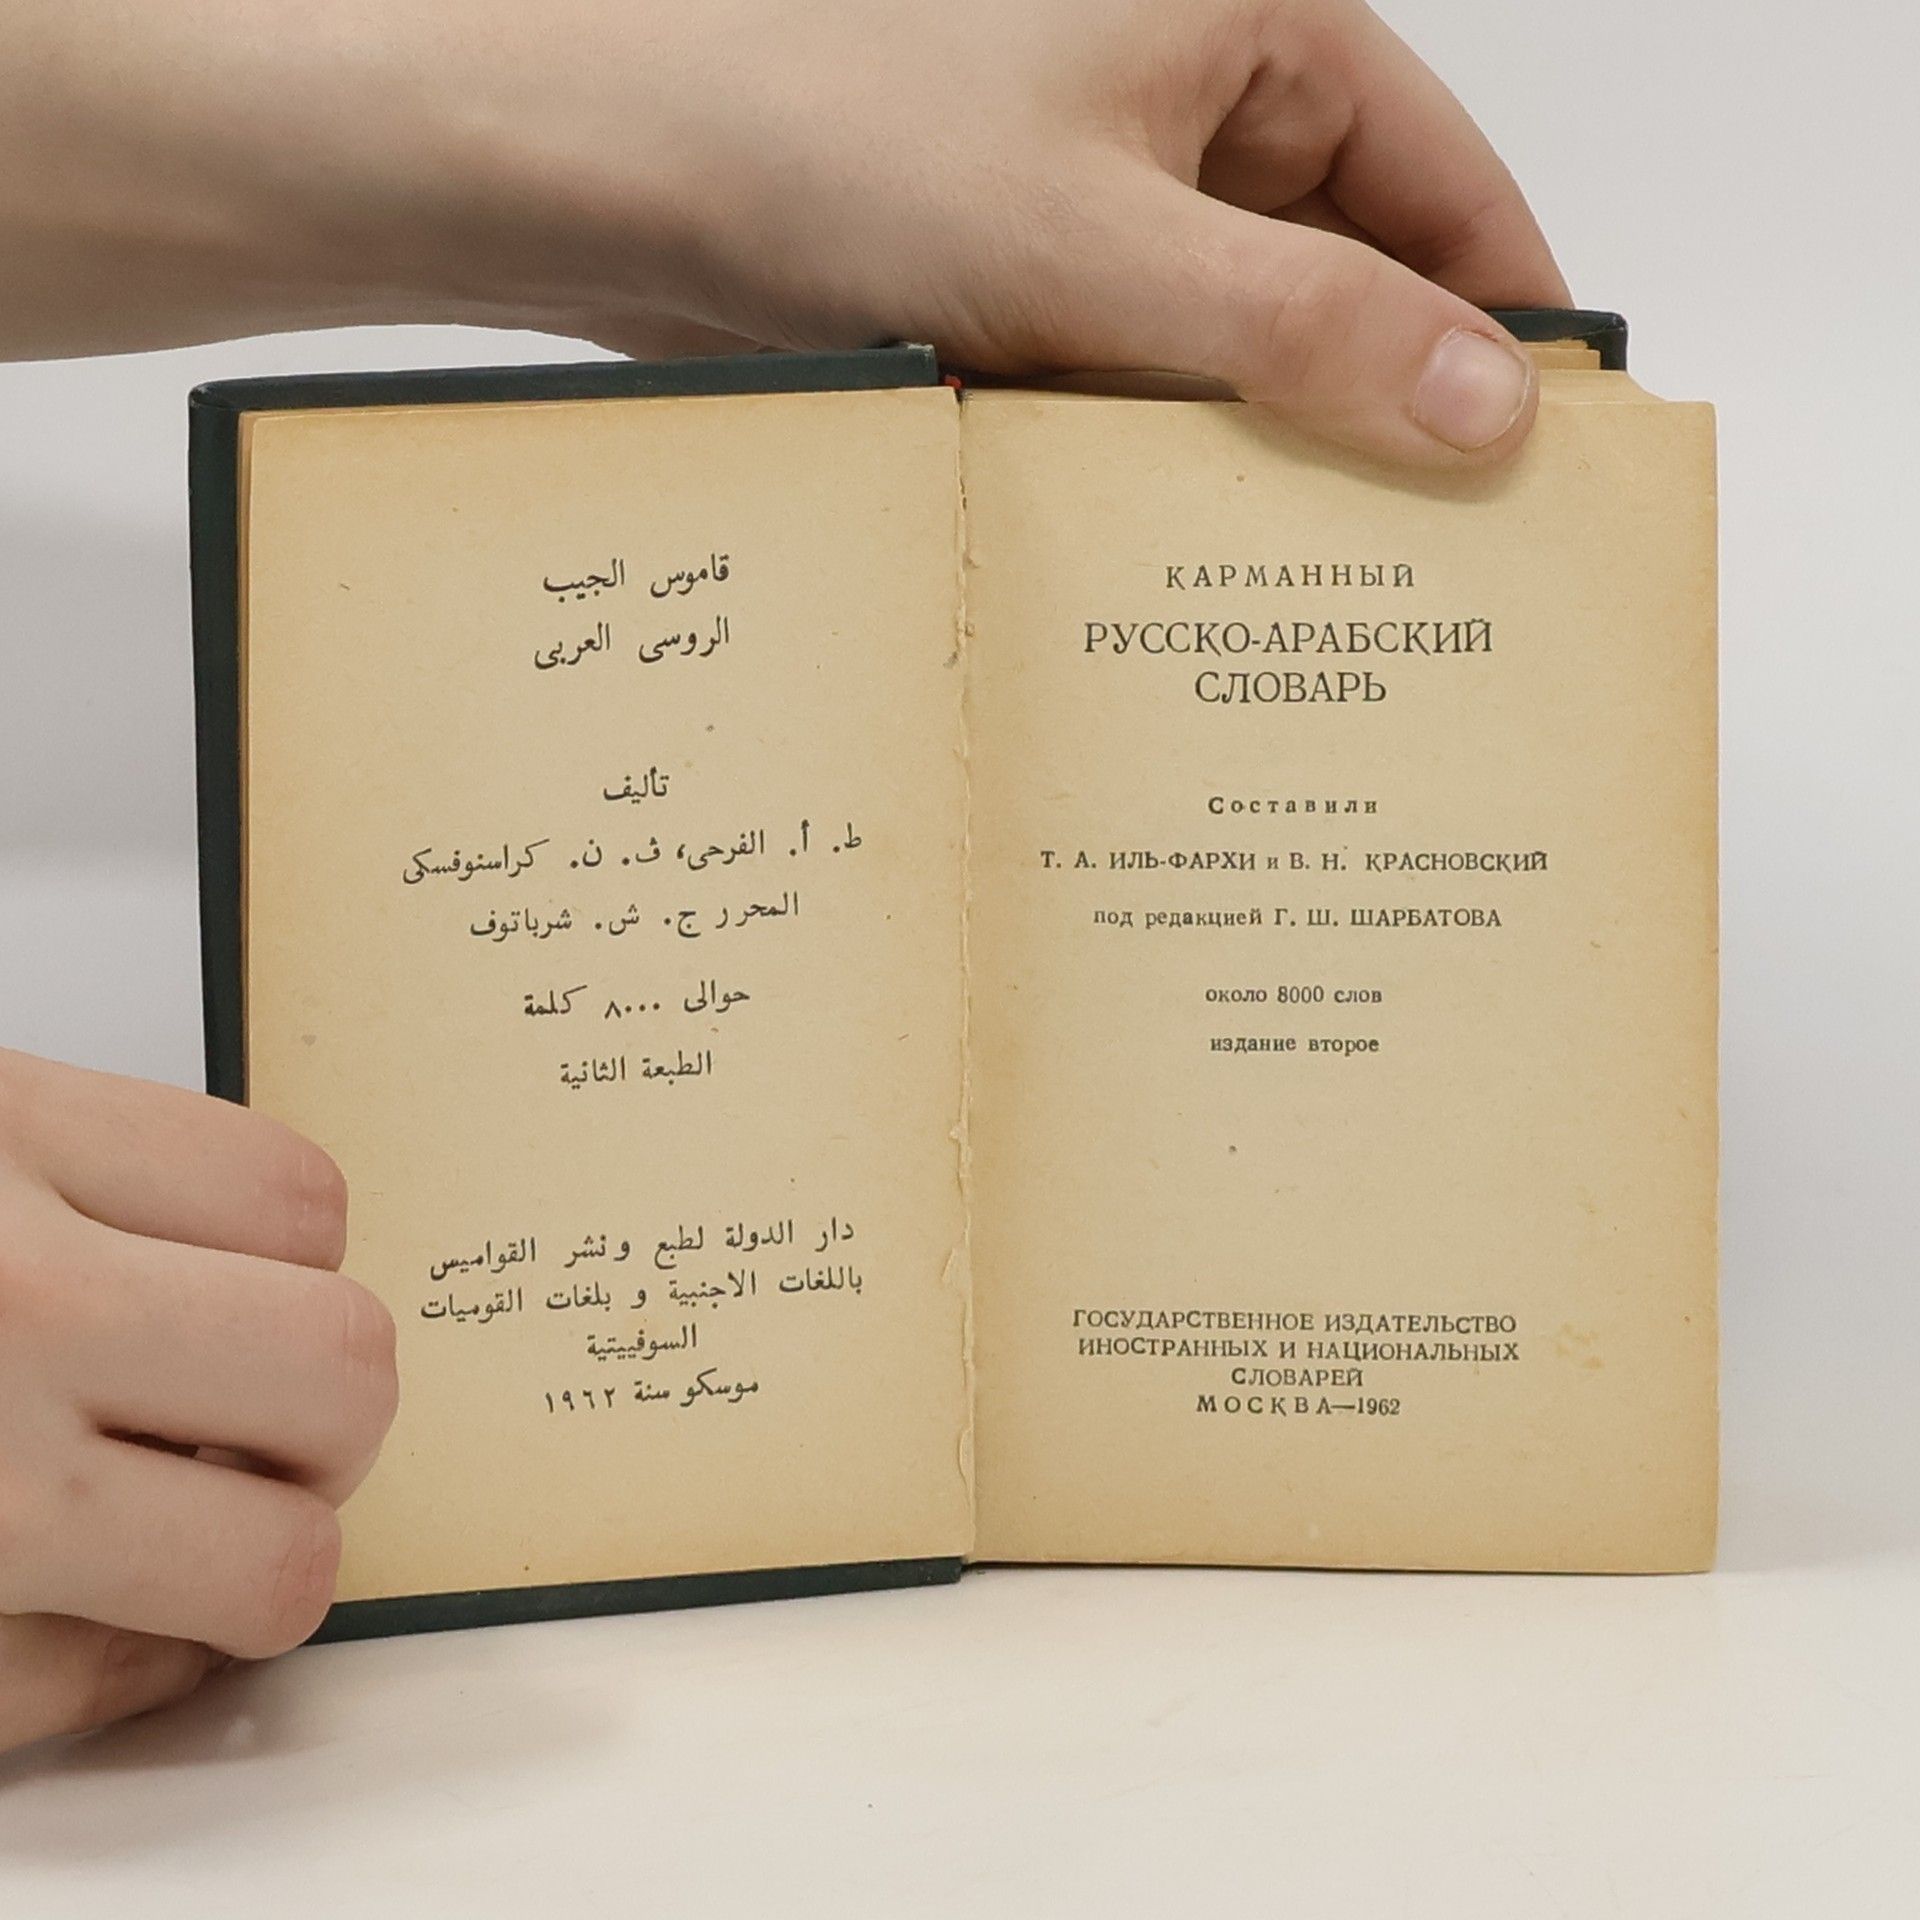 قاموس الجيب
الروسى العربى
تأليف
ط. أ. الفرحى، ڤ. ن. كراسنوفسكى
المحرر ج. ش. شرباتوف
حوالى ٨٠٠٠ كلمة
الطبعة الثانية
دار الدولة لطبع و نشر القواميس
باللغات الاجنبية و بلغات القوميات
السوفييتية
موسكو سنة ١٩٦٢
КАРМАННЫЙ
РУССКО-АРАБСКИЙ
СЛОВАРЬ
Составили
Т. А. ИЛЬ-ФАРХИ и В. Н. КРАСНОВСКИЙ
под редакцией Г. Ш. ШАРБАТОВА
около 8000 слов
издание второе
ГОСУДАРСТВЕННОЕ ИЗДАТЕЛЬСТВО
ИНОСТРАННЫХ И НАЦИОНАЛЬНЫХ
СЛОВАРЕЙ
МОСКВА—1962